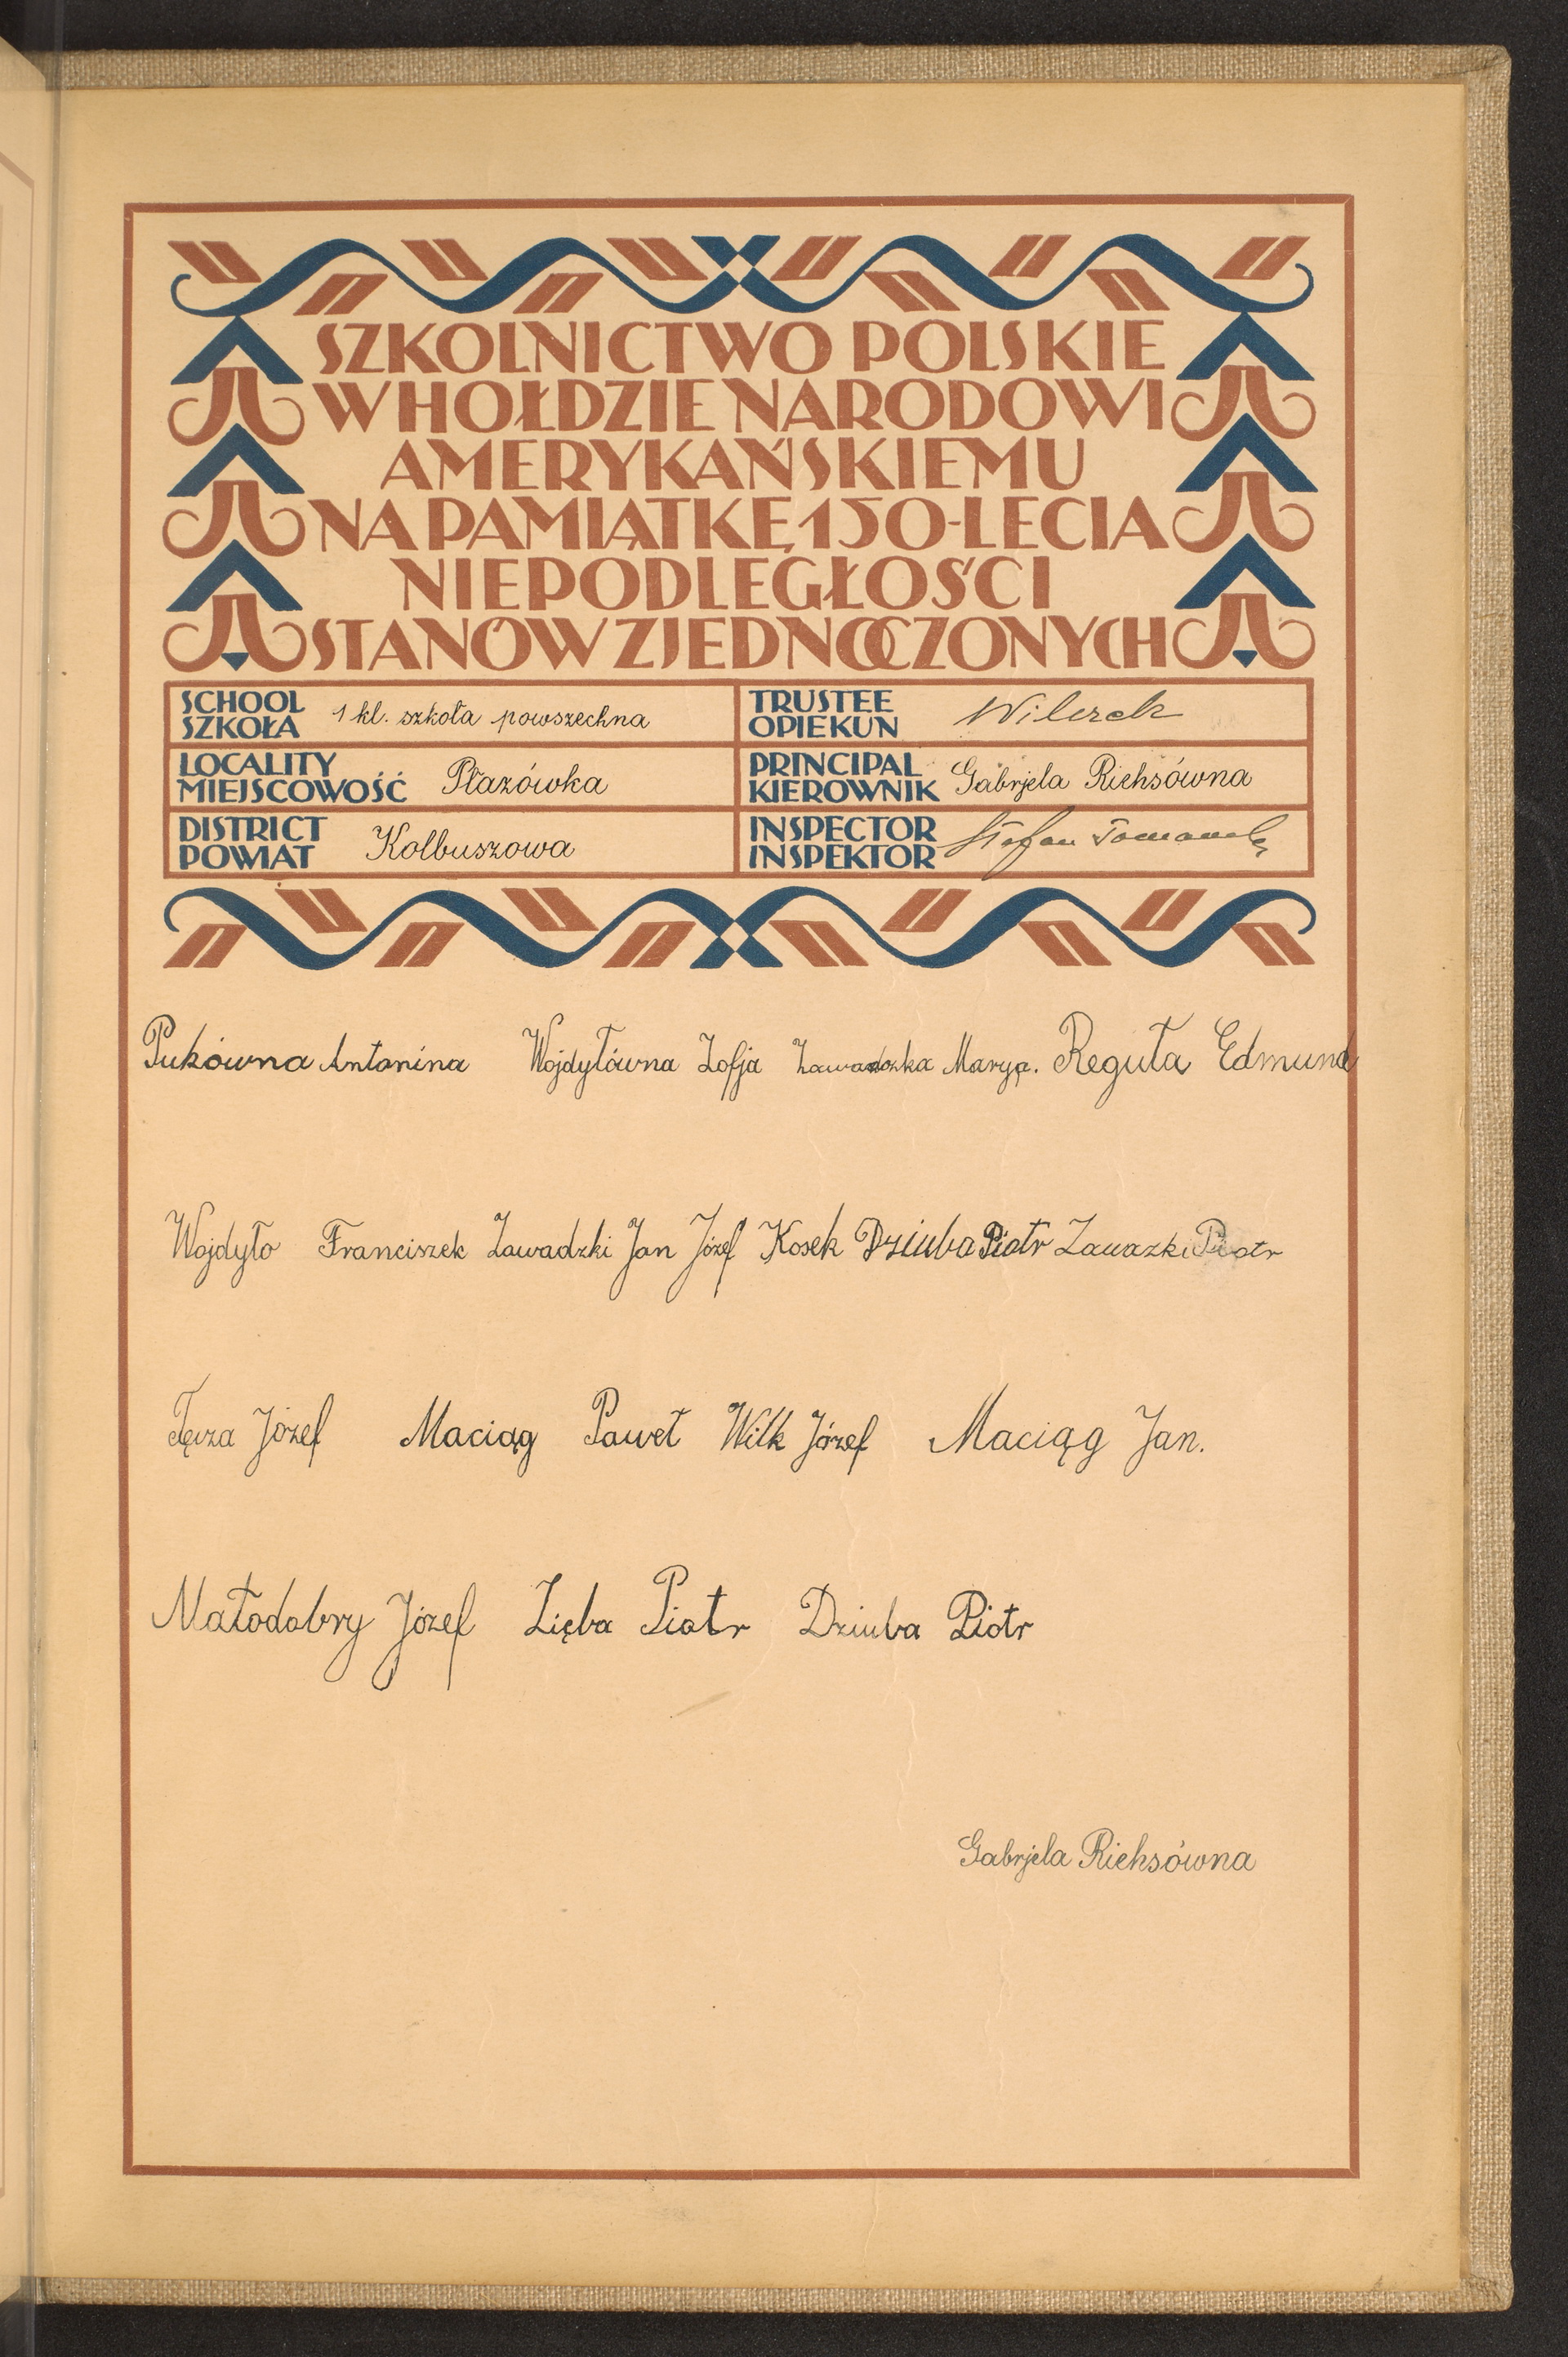 SZKOLNICTWO POLSKIE
W HOŁDZIE NARODOWI
AMERYKAŃSKIEMU
NA PAMIĄTKĘ 150-LECIA
NIEPODLEGŁOŚCI
STANÓW ZJEDNOCZONYCH
SCHOOL
SZKOŁA 1 kl. szkoła powszechna
TRUSTEE
OPIEKUN
LOCALITY
MIEJSCOWOŚĆ Płazówka
PRINCIPAL
KIEROWNIK Gabrjela Riehsówna
DISTRICT
POWIAT Kolbuszowa
INSPECTOR
INSPEKTOR Stefan
Pukówna Antonina Wojdyłówna Zofja Zawadzka Marya. Reguła Edmund
Wojdyło Franciszek Zawadzki Jan Józef Kosek Dziuba Piotr Zawazki Piotr
Tęcza Józef Maciąg Paweł Wilk Józef Maciąg Jan.
Małodobry Józef Zięba Piotr Dziuba Piotr
Gabrjela Riehsówna